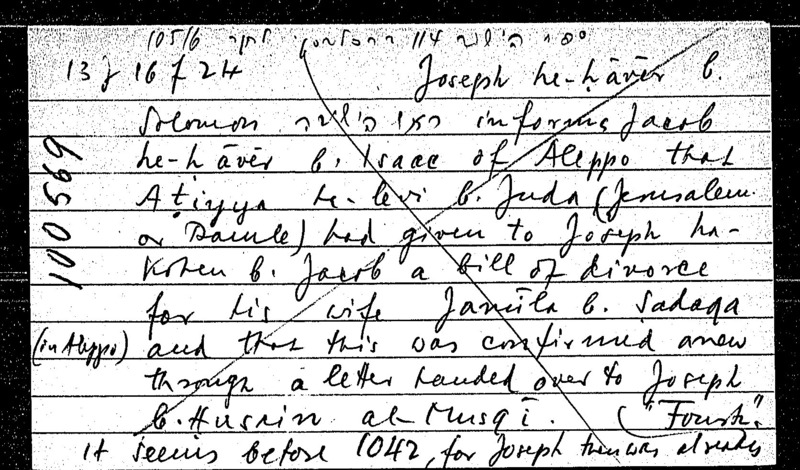 13 J 16 f 24 Joseph he-ḥāvēr b.
Solomon ראש הישיבה informs Jacob
he-ḥāvēr b. Isaac of Aleppo that
Aṭiyya ha-levi b. Juda (Jerusalem
or Ramle) had given to Joseph ha-
Kohen b. Jacob a bill of divorce
for his wife Jamīla b. Ṣadaqa
(in Aleppo) and that this was confirmed anew
through a letter handed over to Joseph
b. Husain al-Musqī. ("Fourth."
It seems before 1042, for Joseph then was already
100569